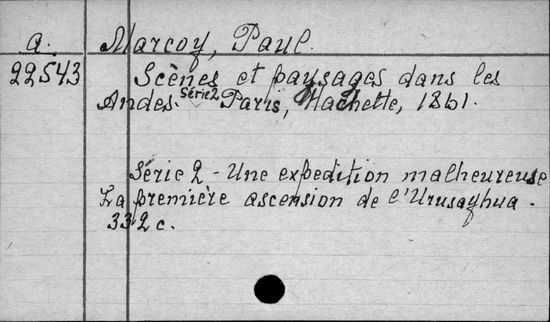 a. Marcoy, Paul.
22543 Scènes et paysages dans les
Andes. Série 2 Paris, Hachette, 1861.
Série 2 - Une expedition malheureuse
La première ascension de l'Urusayhua.
332 c.